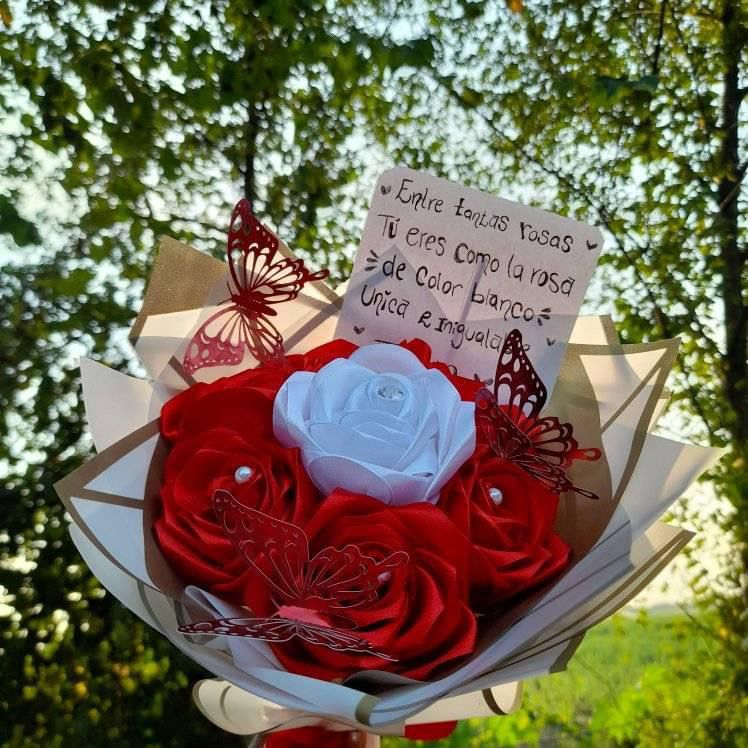 Entre tantas rosas
Tú eres como la rosa
de color blanco
Unica e